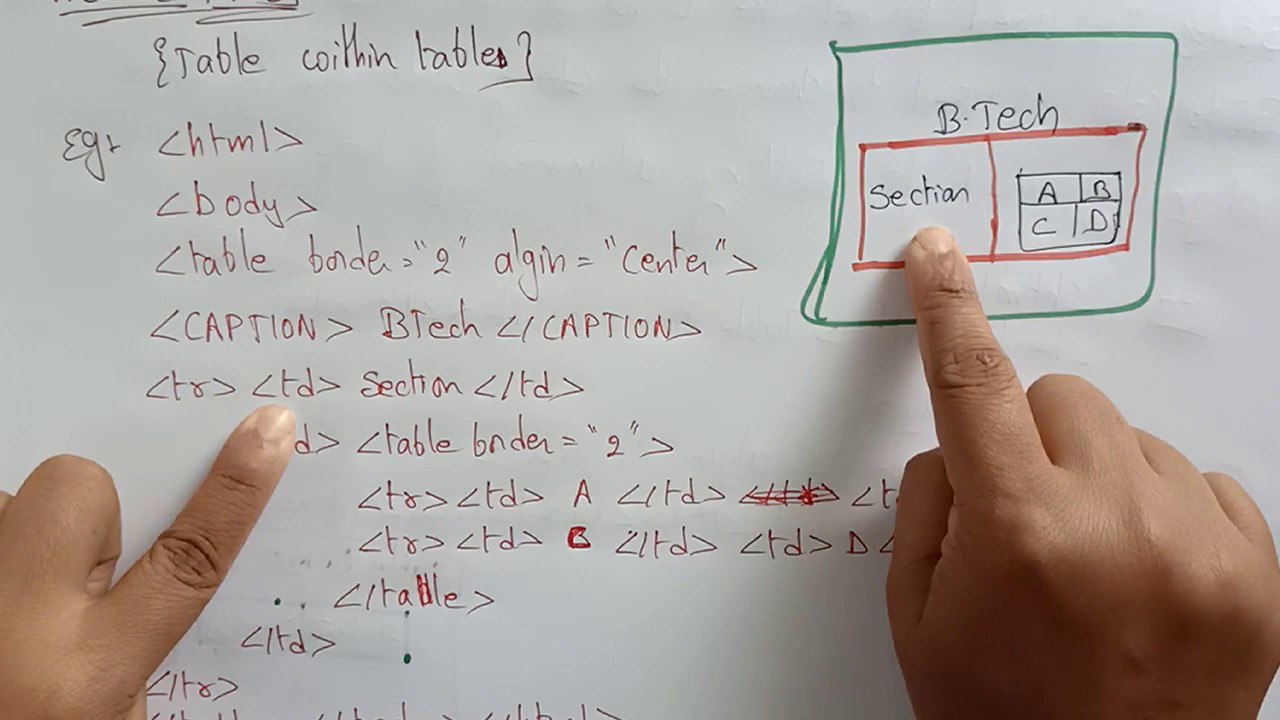 {Table within tables}
Eg:- <html>
<body>
<table border="2" algin="center">
<CAPTION> BTech </CAPTION>
<tr> <td> Section </td>
d> <table border="2">
<tr><td> A </td> <t
<tr><td> C </td> <td> D <
</table>
</td>
</tr>
B.Tech
Section
A B
C D